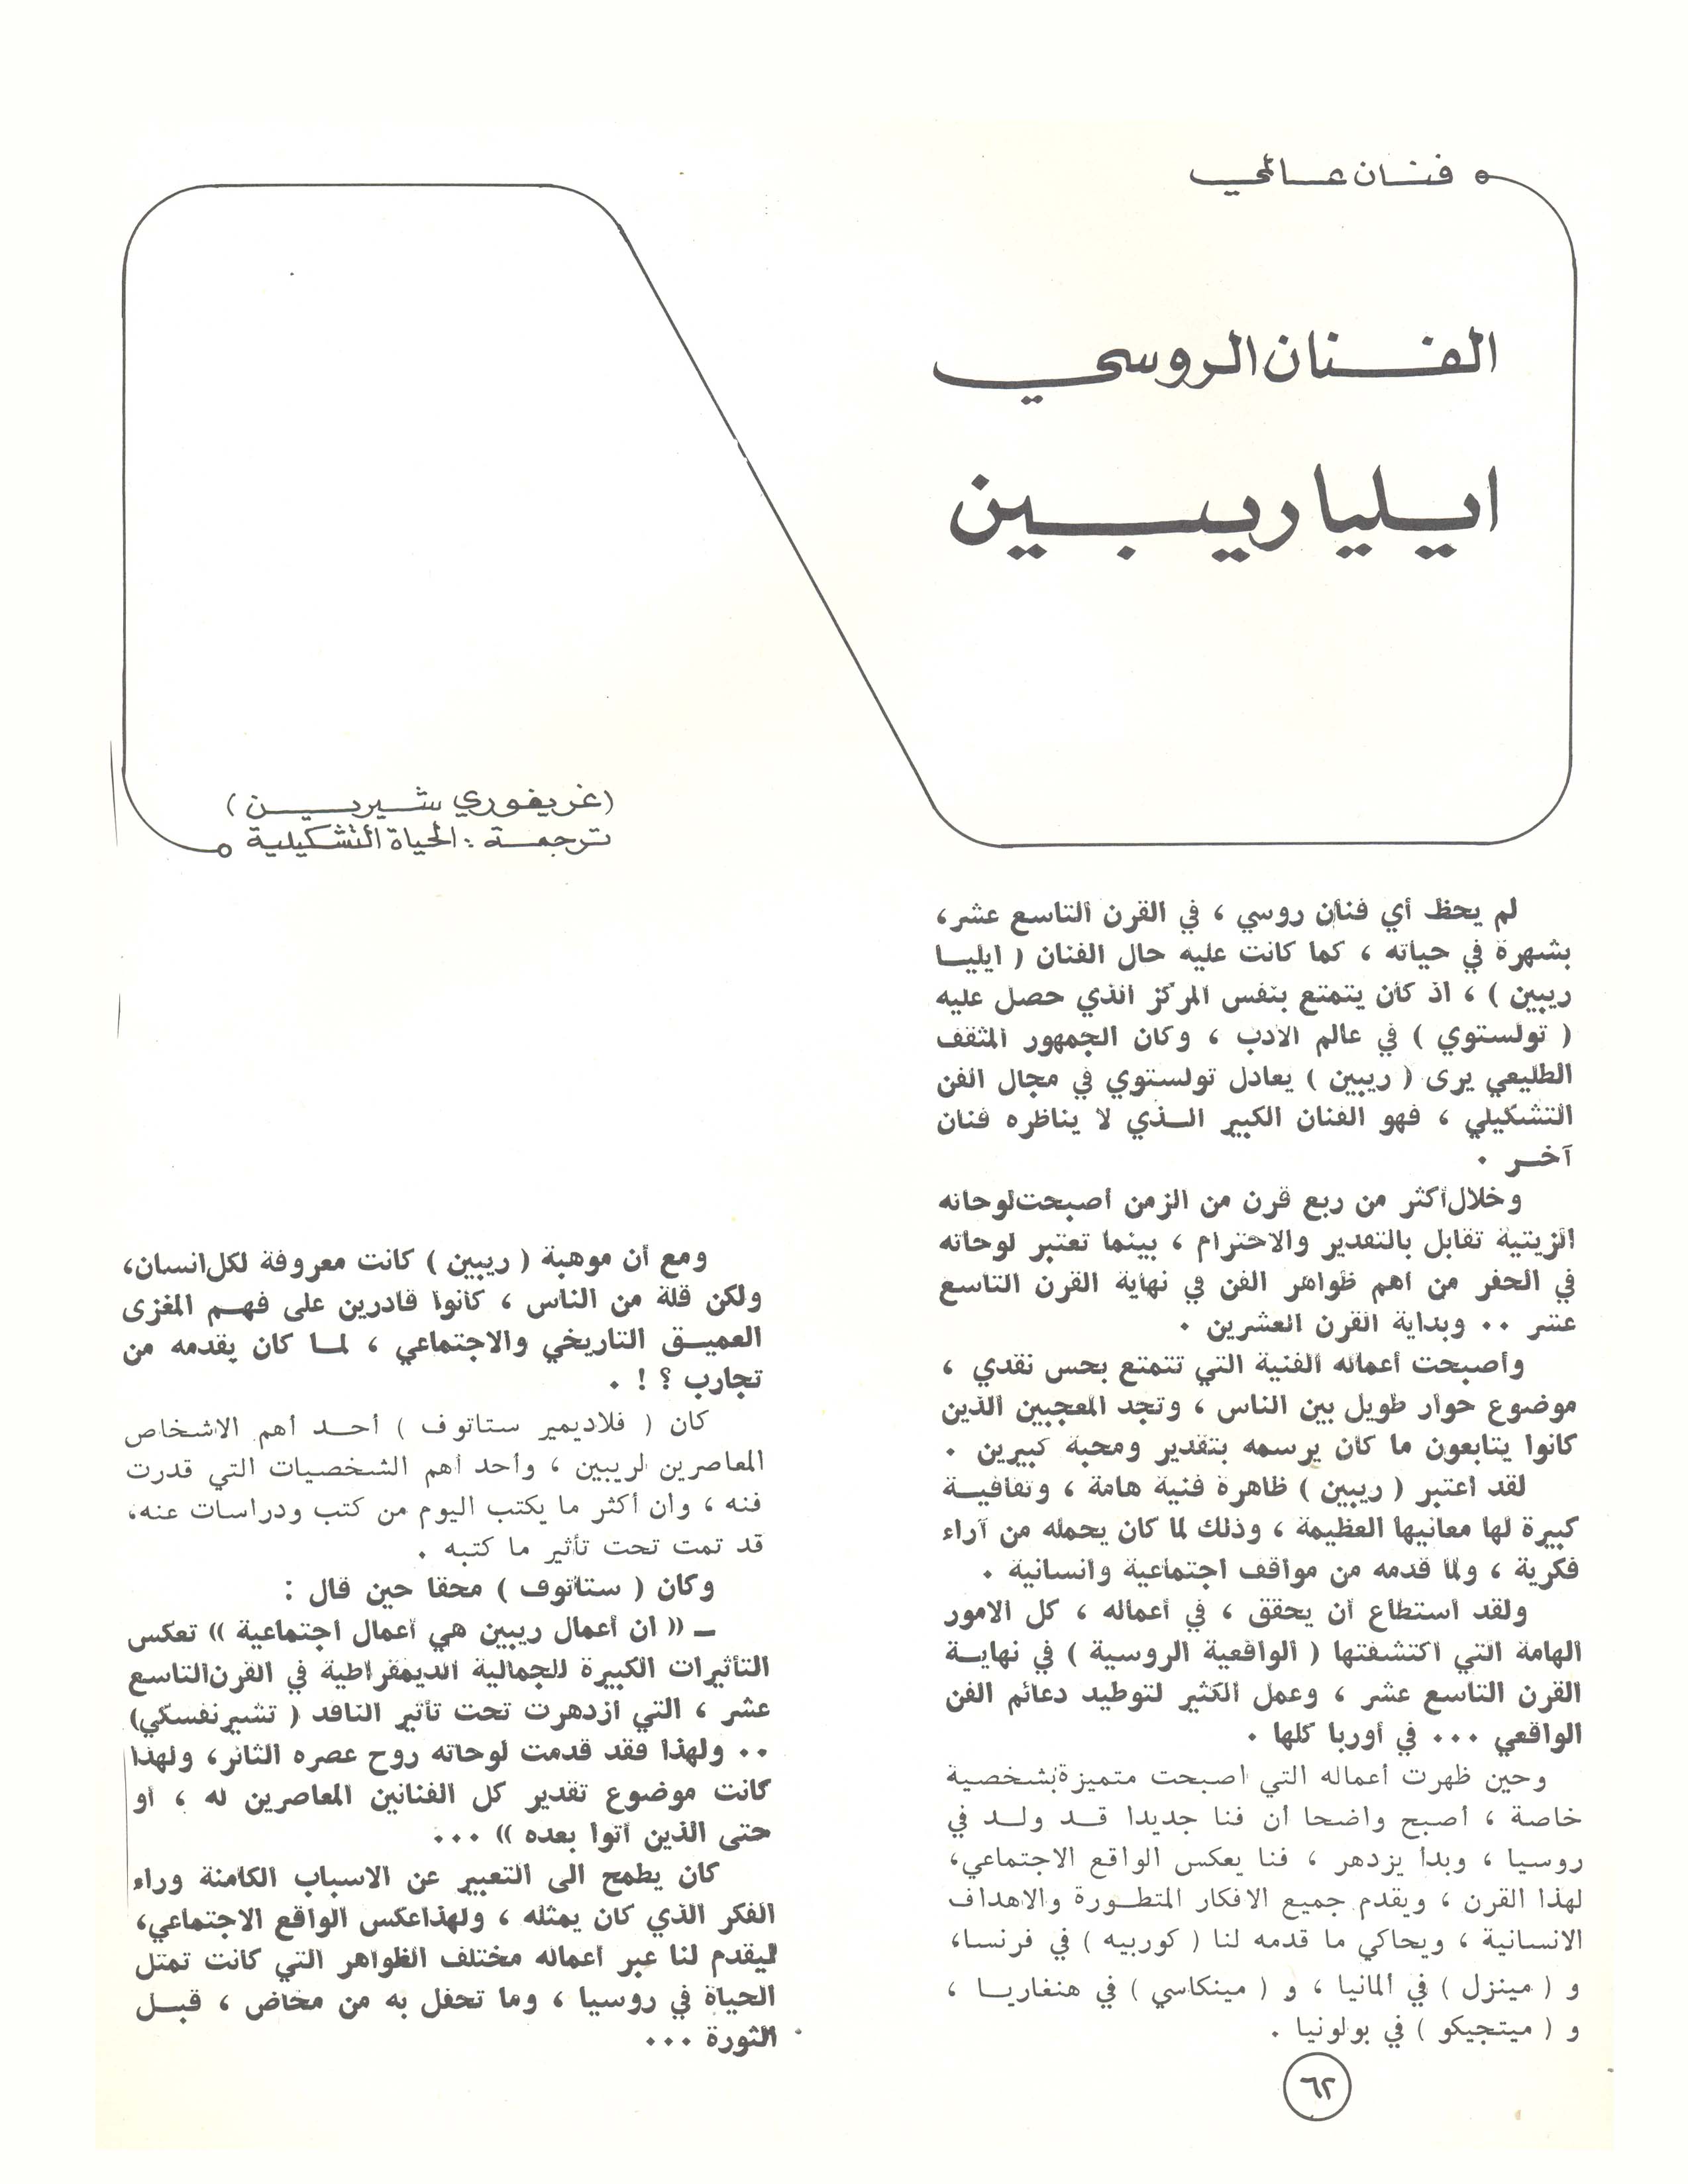 فنان عالمي
الفنان الروسي
ايليا ريبين
(غريغوري شيرين)
ترجمة : الحياة التشكيلية
لم يحظ أي فنان روسي ، في القرن التاسع عشر،
بشهرة في حياته ، كما كانت عليه حال الفنان ( ايليا
ريبين ) ، اذ كان يتمتع بنفس المركز الذي حصل عليه
( تولستوي ) في عالم الادب ، وكان الجمهور المثقف
الطليعي يرى ( ريبين ) يعادل تولستوي في مجال الفن
التشكيلي ، فهو الفنان الكبير الذي لا يناظره فنان
آخر .
وخلال أكثر من ربع قرن من الزمن أصبحت لوحاته
الزيتية تقابل بالتقدير والاحترام ، بينما تعتبر لوحاته
في الحفر من أهم ظواهر الفن في نهاية القرن التاسع
عشر .. وبداية القرن العشرين .
وأصبحت أعماله الفنية التي تتمتع بحس نقدي ،
موضوع حوار طويل بين الناس ، وتجد المعجبين الذين
كانوا يتابعون ما كان يرسمه بتقدير ومحبة كبيرين .
لقد اعتبر ( ريبين ) ظاهرة فنية هامة ، وثقافية
كبيرة لها معانيها العظيمة ، وذلك لما كان يحمله من آراء
فكرية ، ولما قدمه من مواقف اجتماعية وانسانية .
ولقد استطاع أن يحقق ، في أعماله ، كل الامور
الهامة التي اكتشفتها ( الواقعية الروسية ) في نهاية
القرن التاسع عشر ، وعمل الكثير لتوطيد دعائم الفن
الواقعي ... في أوربا كلها .
وحين ظهرت أعماله التي اصبحت متميزة بشخصية
خاصة ، أصبح واضحا أن فنا جديدا قد ولد في
روسيا ، وبدأ يزدهر ، فنا يعكس الواقع الاجتماعي،
لهذا القرن ، ويقدم جميع الافكار المتطورة والاهداف
الانسانية ، ويحاكي ما قدمه لنا ( كوربيه ) في فرنسا،
و ( مينزل ) في المانيا ، و ( مينكاسي ) في هنغاريا ،
و ( ميتجيكو ) في بولونيا .
ومع أن موهبة ( ريبين ) كانت معروفة لكل انسان،
ولكن قلة من الناس ، كانوا قادرين على فهم المغزى
العميق التاريخي والاجتماعي ، لما كان يقدمه من
تجارب ؟ ! .
كان ( فلاديمير ستاتوف ) أحد أهم الاشخاص
المعاصرين لريبين ، وأحد أهم الشخصيات التي قدرت
فنه ، وان أكثر ما يكتب اليوم من كتب ودراسات عنه،
قد تمت تحت تأثير ما كتبه .
وكان ( ستاتوف ) محقا حين قال :
ـ (( ان أعمال ريبين هي أعمال اجتماعية )) تعكس
التأثيرات الكبيرة للجمالية الديمقراطية في القرن التاسع
عشر ، التي ازدهرت تحت تأثير الناقد ( تشيرنفسكي)
.. ولهذا فقد قدمت لوحاته روح عصره الثائر، ولهذا
كانت موضوع تقدير كل الفنانين المعاصرين له ، أو
حتى الذين أتوا بعده )) ...
كان يطمح الى التعبير عن الاسباب الكامنة وراء
الفكر الذي كان يمثله ، ولهذا عكس الواقع الاجتماعي،
ليقدم لنا عبر أعماله مختلف الظواهر التي كانت تمثل
الحياة في روسيا ، وما تحفل به من مخاض ، قبل
الثورة ...
٦٢